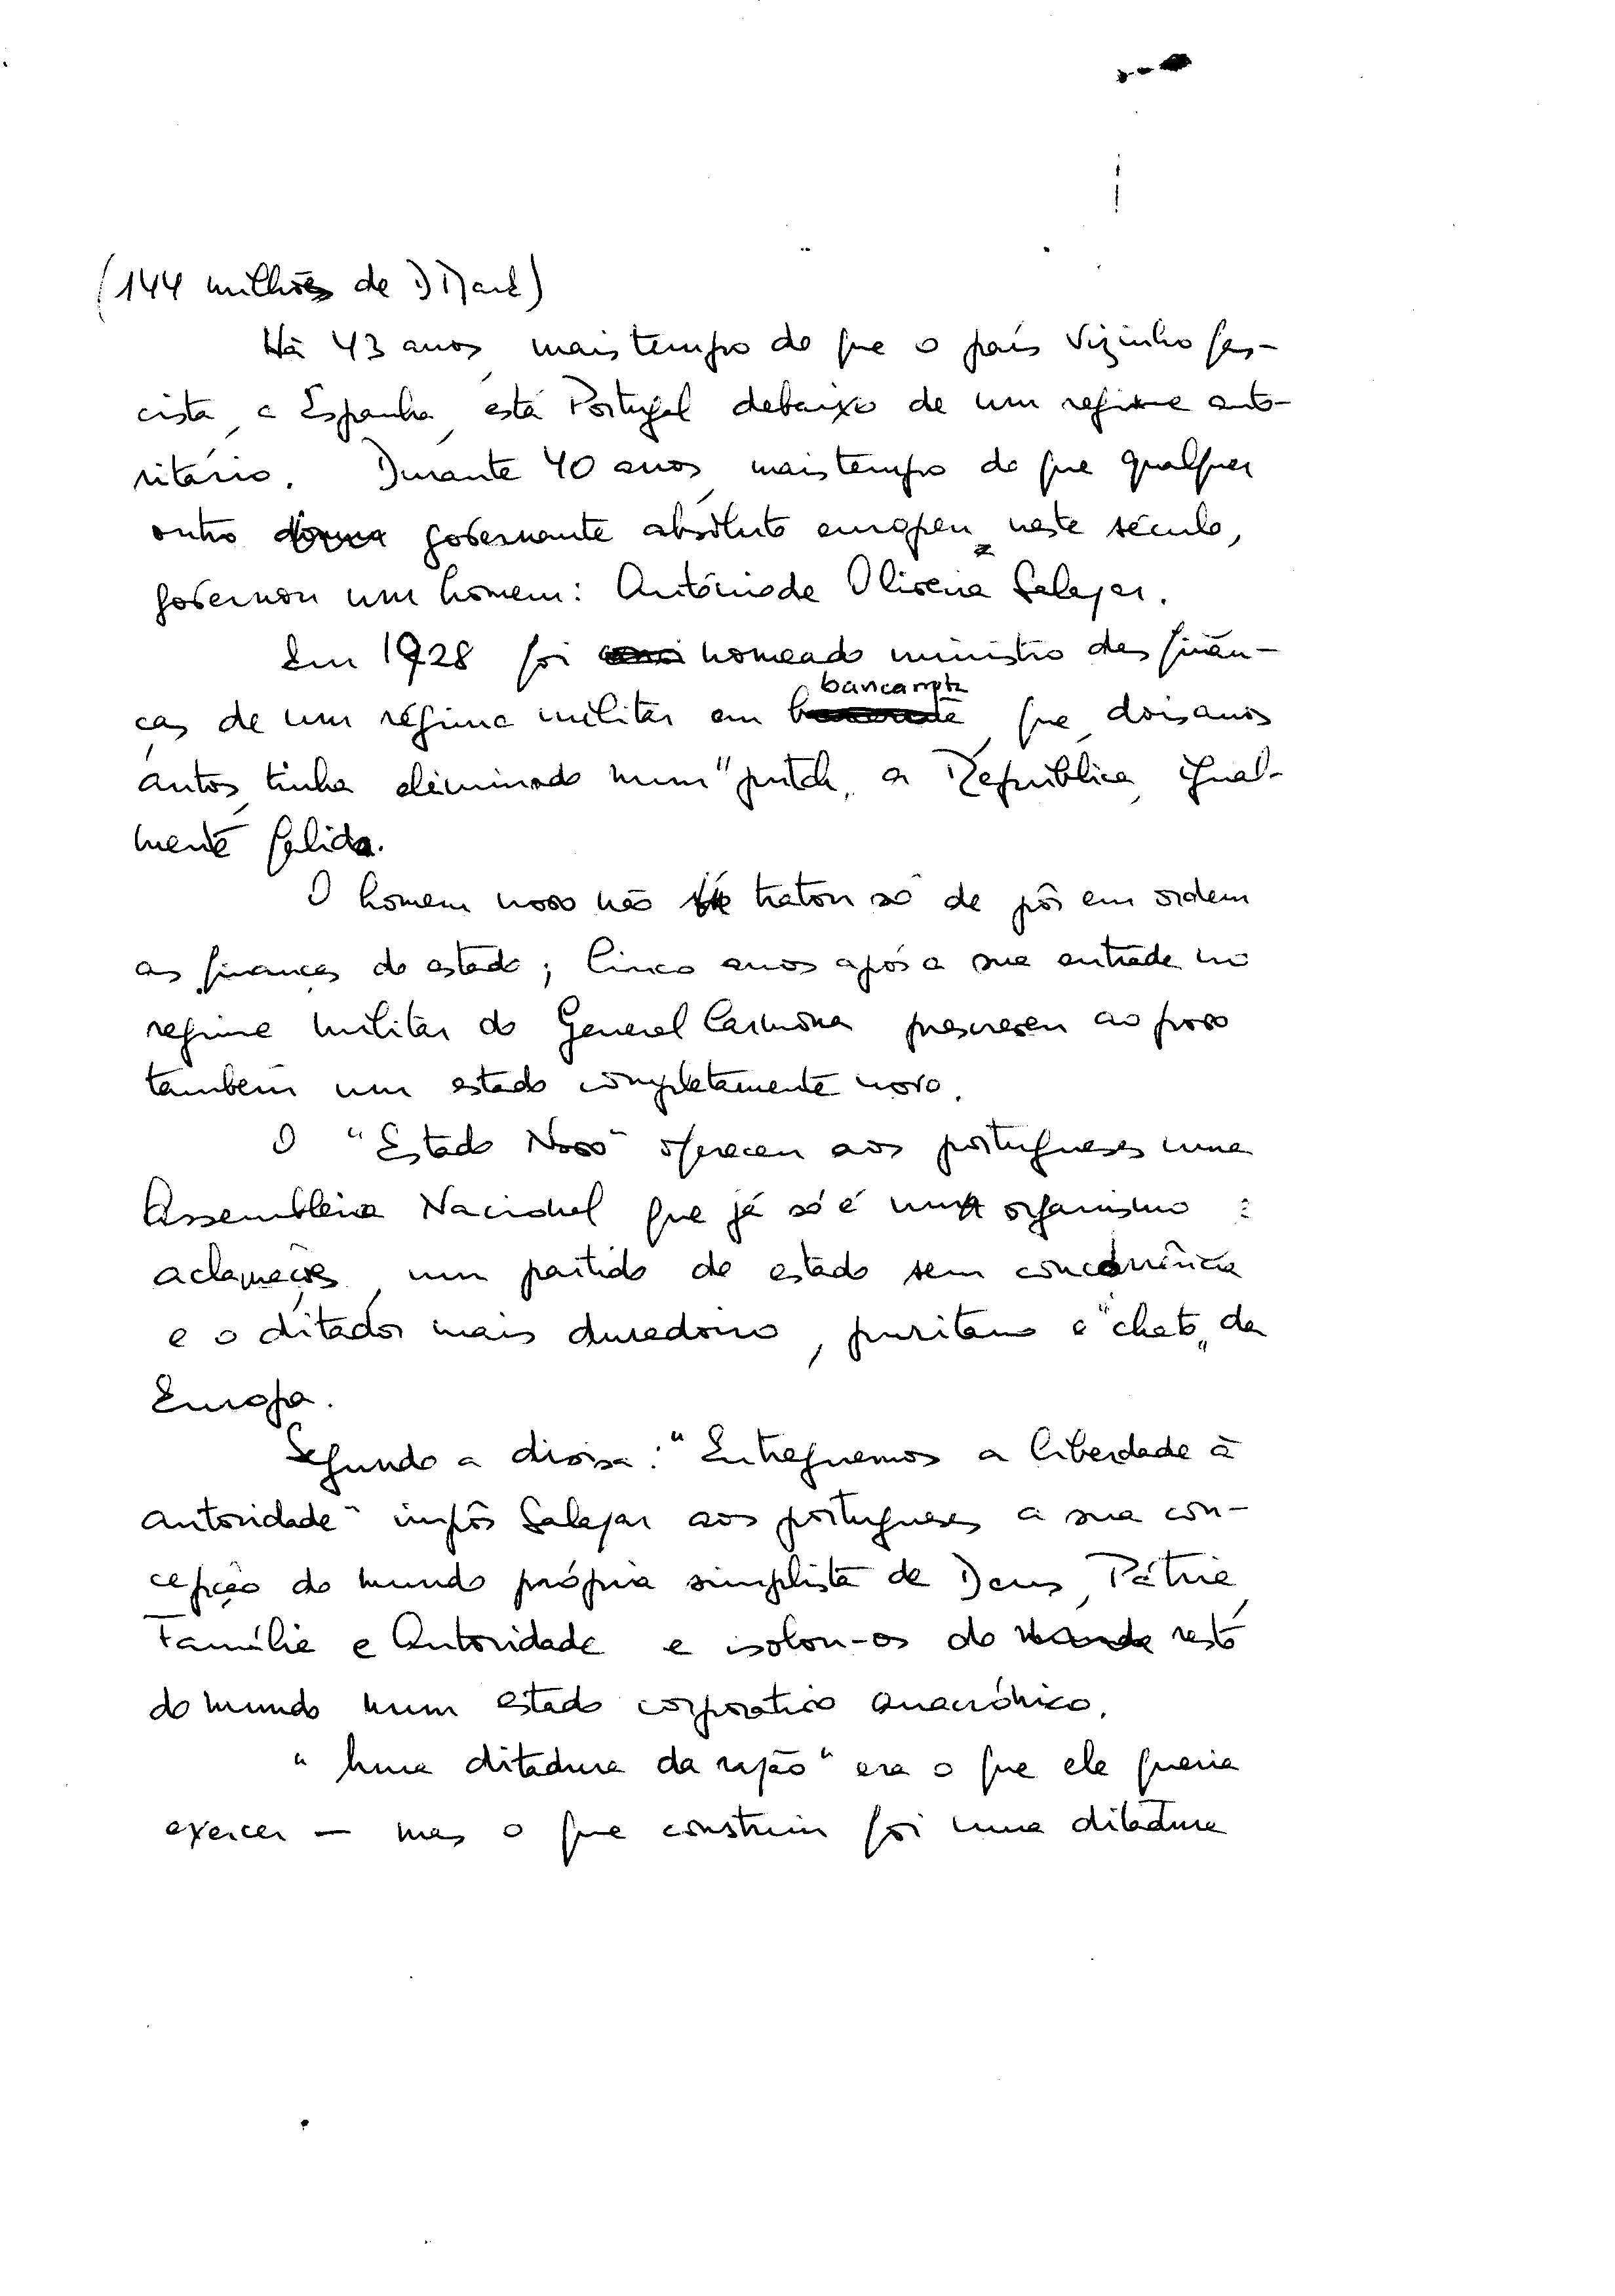 (144 milhões de DMark)
Há 43 anos, mais tempo do que o país vizinho fas-
cista, a Espanha, está Portugal debaixo de um regime auto-
ritário. Durante 40 anos, mais tempo do que qualquer
outro governante absoluto europeu neste século,
governou um homem: António de Oliveira Salazar.
Em 1928 foi nomeado ministro das finan-
ças de um régime militar em bancarrota, que, dois anos
antes, tinha eliminado num "putch" a República, igual-
mente falida.
O homem novo não tratou só de pôr em ordem
as finanças do estado; cinco anos após a sua entrada no
regime militar do General Carmona prescreveu ao povo
também um estado completamente novo.
O "Estado Novo" ofereceu aos portugueses uma
Assembleia Nacional que já só é um organismo :
aclamações, um partido de estado sem concorrência
e o ditador mais duradoiro, puritano e "chato" da
Europa.
Segundo a divisa: "Entreguemos a liberdade à
autoridade" impôs Salazar aos portugueses a sua con-
cepção do mundo própria simplista de Deus, Pátria,
Família e Autoridade e isolou-os do resto
do mundo num estado corporativo anacrónico.
"Uma ditadura da razão" era o que ele queria
exercer — mas o que construiu foi uma ditadura